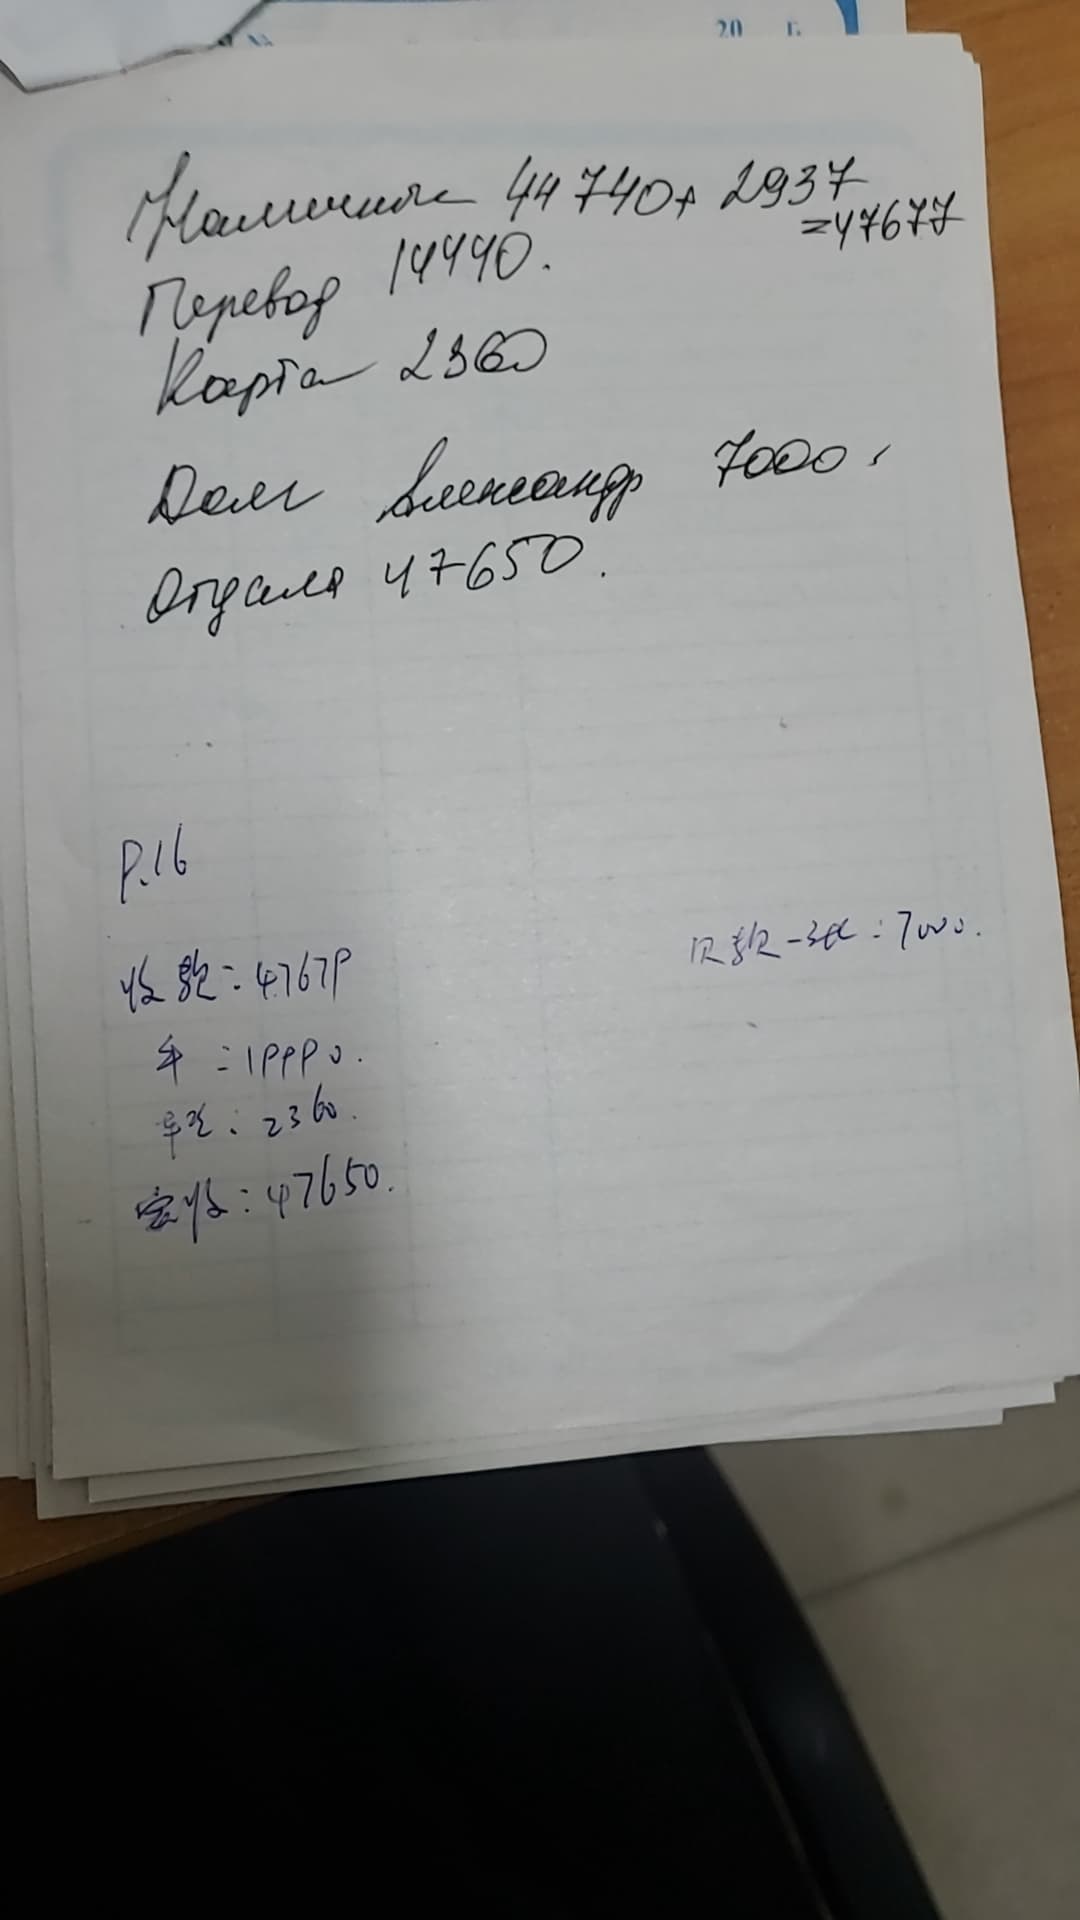 № 20 г.
Наличные 44740+ 2937
=47677
Перевод 14440.
Карта 2360
Долг Александр 7000.
Отдала 47650.
P.16
欠款 : 7000.
收款 : 4767
: 2360.
实收 : 47650.